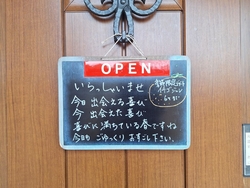 OPEN
いらっしゃいませ
今日出会える喜び
今 出会えた喜び
喜びに満ちている春ですね
今日も ごゆっくり おすごし下さい。